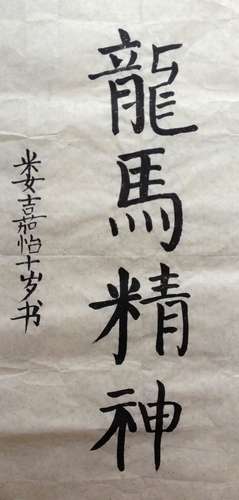 龍馬精神
娄嘉怡十岁书